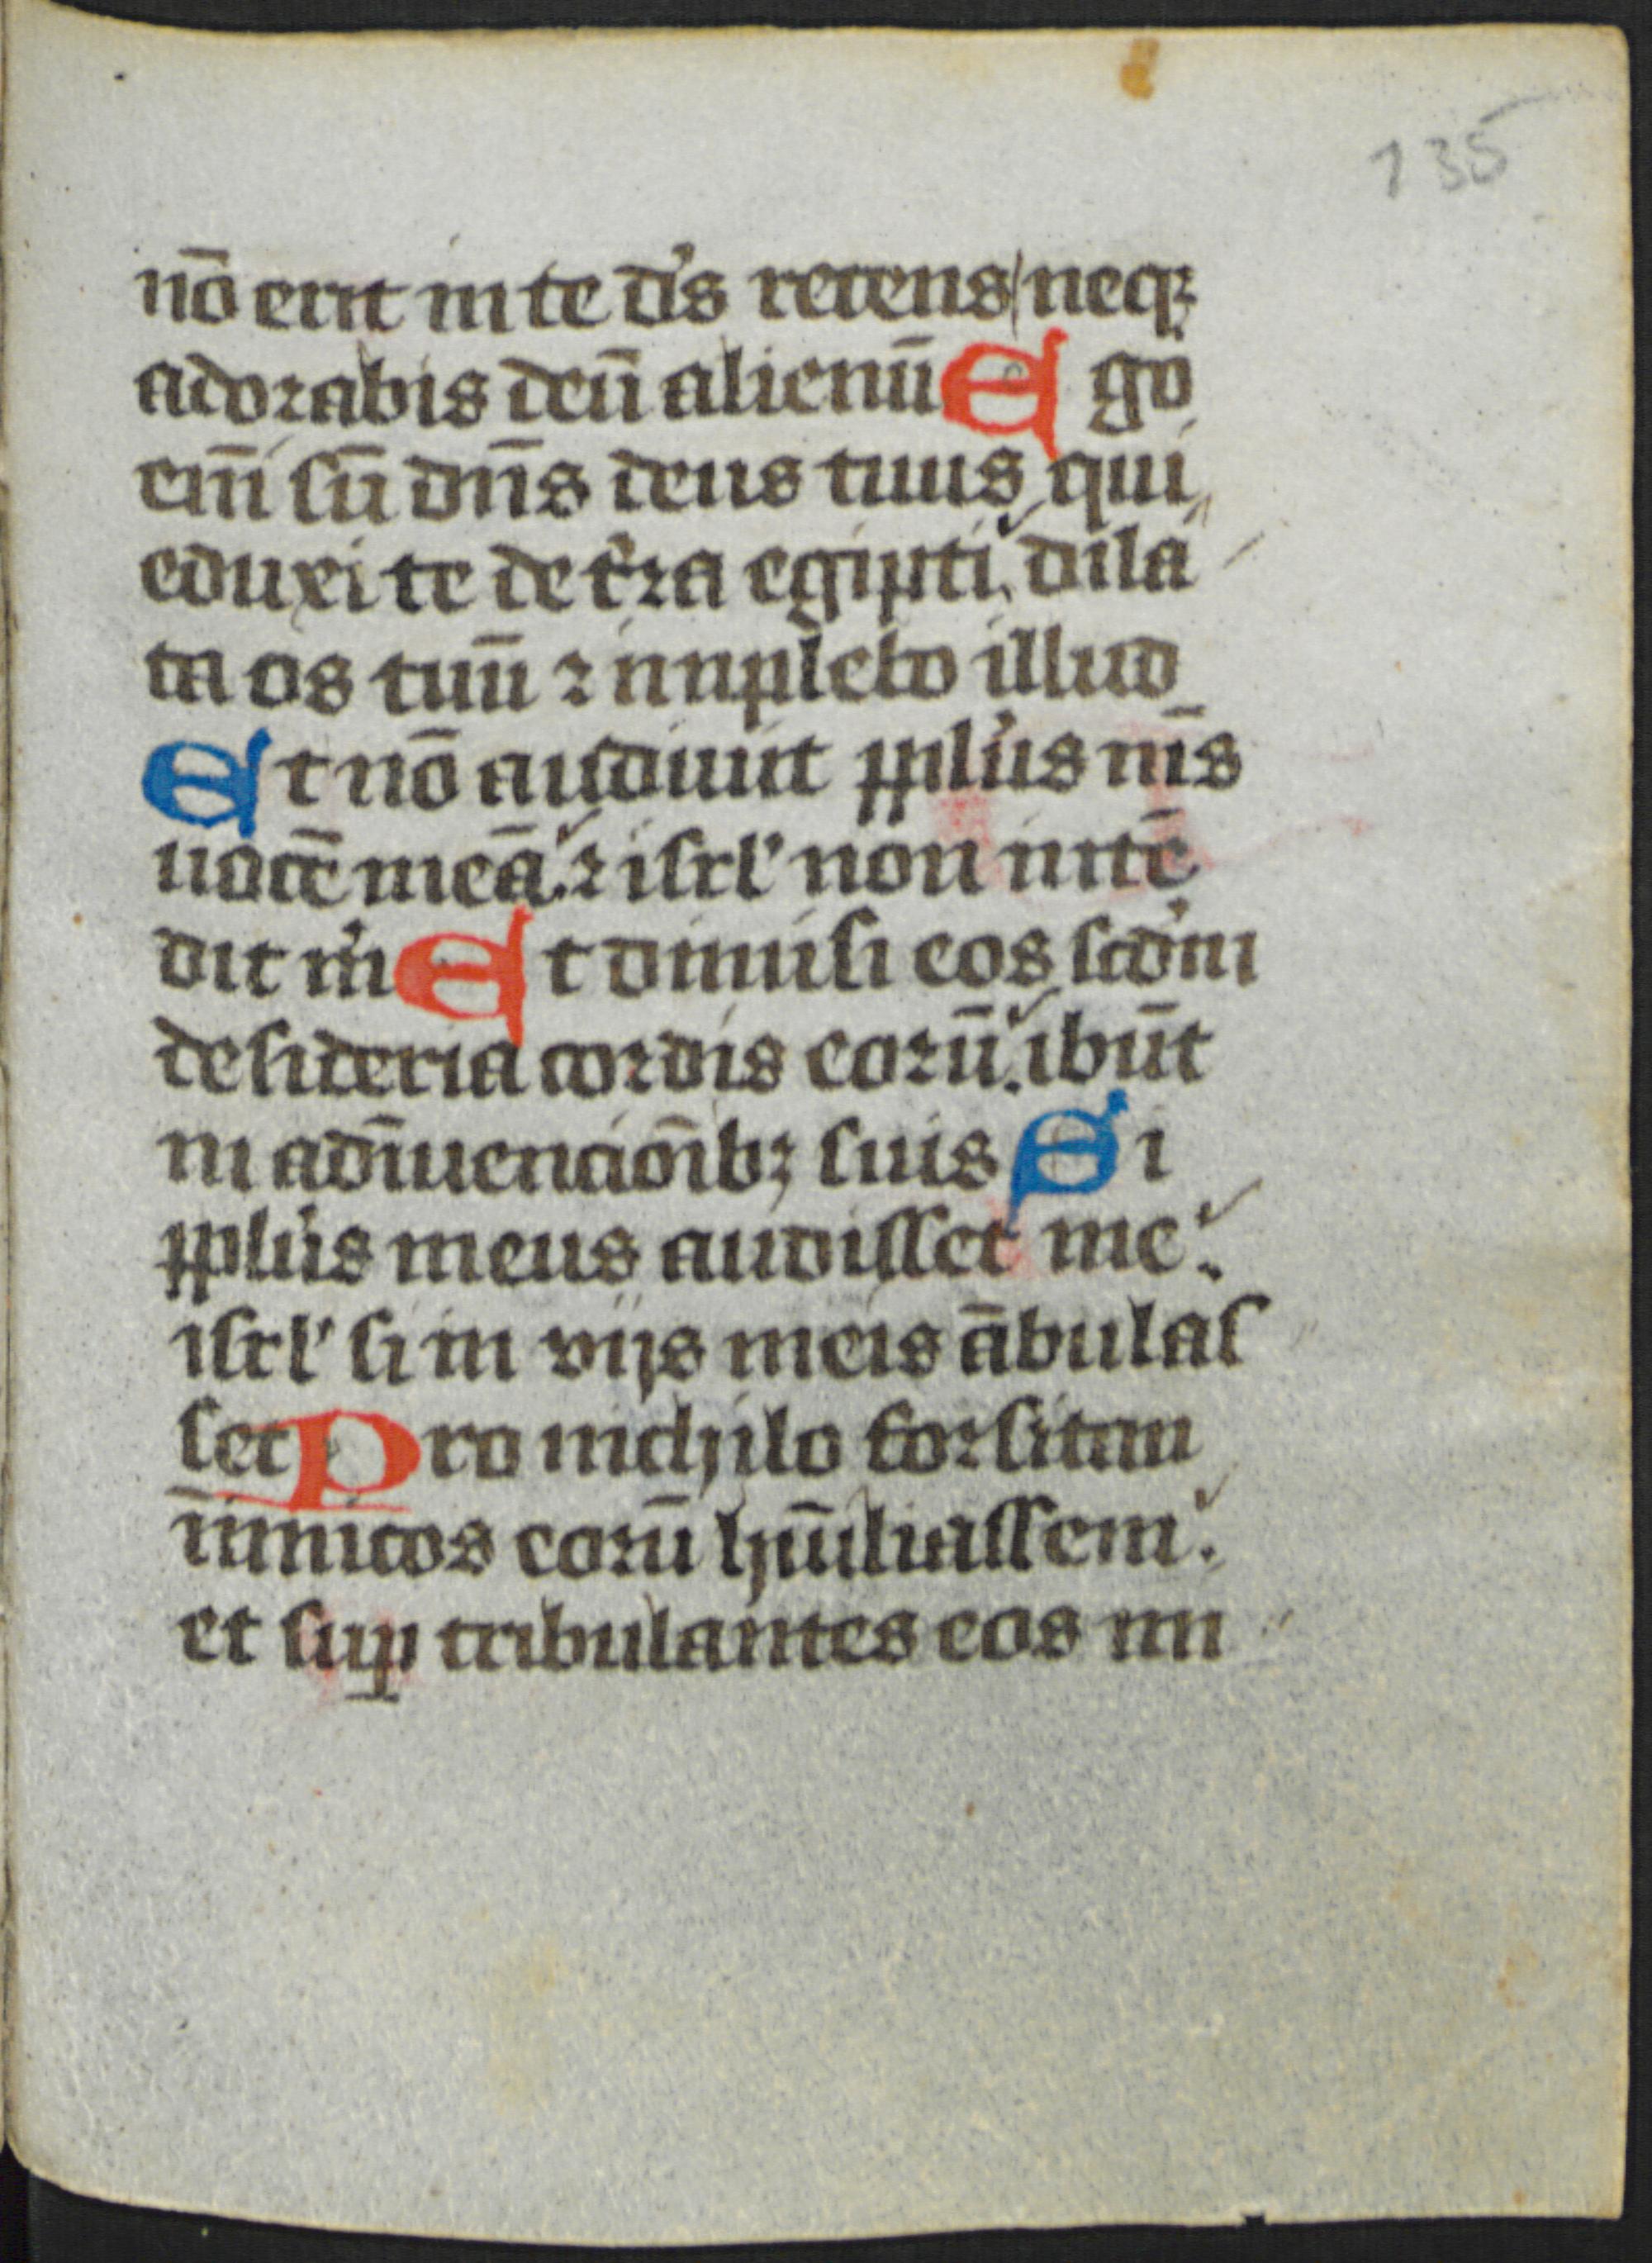 135
nō erit in te d's recens neqꝫ
adorabis deū alienū Ego
em̄ sū dn̄s deus tuus qui
eduxi te de t'ra egipti. dila
ta os tuū ⁊ inplebo illud
Et nō audiuit ppl'us m̄s
uocē meā. ⁊ isrl' non intē
dit m' Et dimisi eos scd'm
desideria cordis eorū. ibūt
in adīuencionibꝫ suis Si
ppl'us meus audisset me.
isrl' si in vijs meis ābulas
set Pro nichilo forsitan
īimicos eorū hūiliassem.
et suꝑ tribulantes eos mi